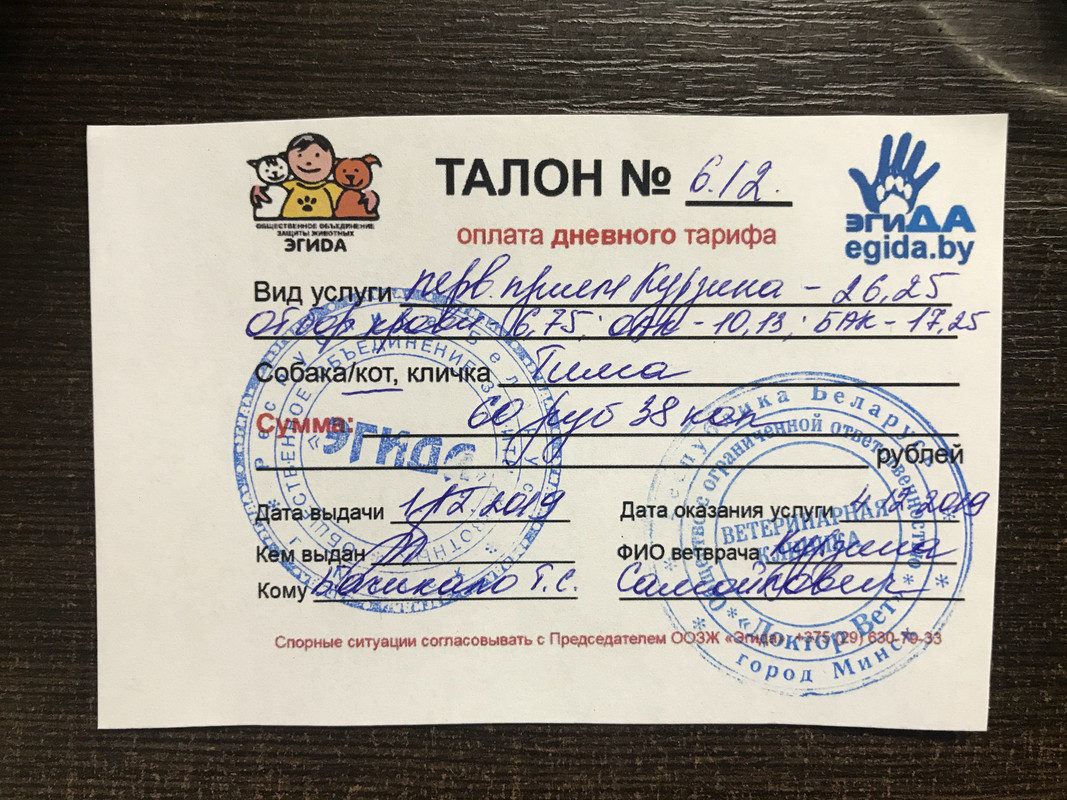 ОБЩЕСТВЕННОЕ ОБЪЕДИНЕНИЕ
ЗАЩИТЫ ЖИВОТНЫХ
ЭГИДА
ТАЛОН № 6.12.
оплата дневного тарифа
эгиДА
egida.by
Вид услуги перв. прием Курзина - 26,25
Отбор крови 6,75; ОАК - 10,13; БАК - 17,25
Собака/кот, кличка Тима
Сумма: 60 руб 38 коп
рублей
Дата выдачи 1.12.2019
Дата оказания услуги 4.12.2019
Кем выдан
ФИО ветврача Курзина
Кому Т.С.
Самойлович
Спорные ситуации согласовывать с Председателем ООЗЖ «Эгида» +375 (29) 630-70-33
«ЭГИДА»
Республика Беларусь
Общество с ограниченной ответственностью
ВЕТЕРИНАРНАЯ
КЛИНИКА
«Доктор Вет»
город Минск